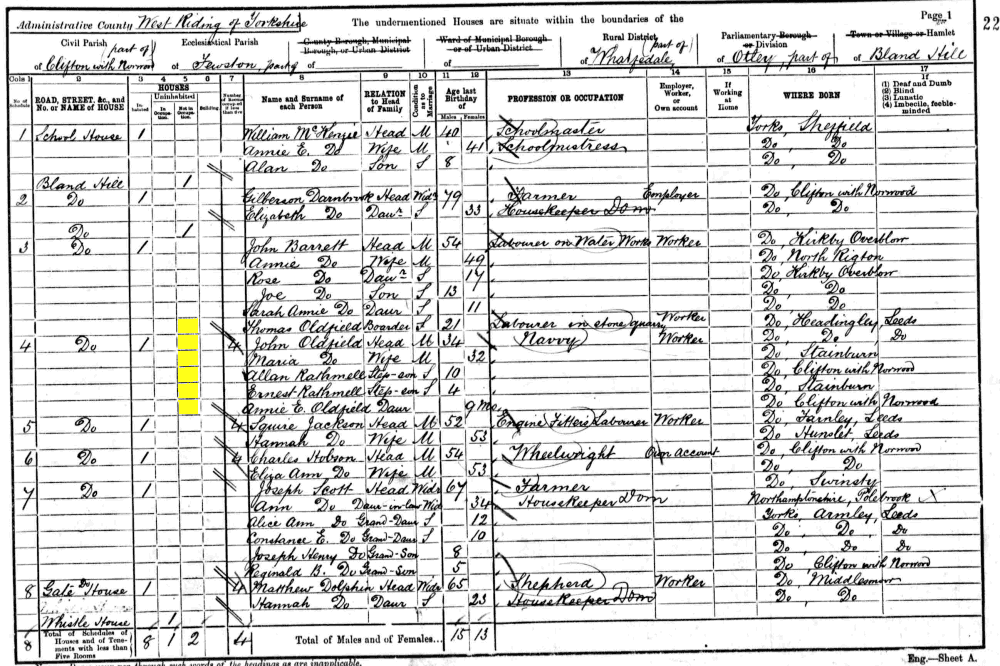 Administrative County West Riding of Yorkshire The undermentioned Houses are situate within the boundaries of the Page 1 22
Civil Parish Ecclesiastical Parish County Borough, Municipal Borough, or Urban District Ward of Municipal Borough or of Urban District Rural District Parliamentary Borough or Division Town or Village or Hamlet
part of of Clifton with Norwood of Fewston, part of of of part of of of Otley, part of of Bland Hill
Cols 1 2 3 4 5 6 7 8 9 10 11 12 13 14 15 16 17
No. of Schedule ROAD, STREET, &c., and No. or NAME of HOUSE HOUSES Inhabited Uninhabited In Occupation Not in Occupation Building Number of Rooms occupied if less than five Name and Surname of each Person RELATION to Head of Family Condition as to Marriage Age last Birthday of Males Females PROFESSION OR OCCUPATION Employer, Worker, or Own account If Working at Home WHERE BORN If (1) Deaf and Dumb (2) Blind (3) Lunatic (4) Imbecile, feeble-minded
1 School House 1 William McKenzie Head M 40 Schoolmaster Yorks, Sheffield
Annie E. Do Wife M 41 Schoolmistress Do, Do
Alan Do Son S 8 Do, Do
Bland Hill 1
2 Do 1 Gilberson Darnbrook Head Widr 79 Farmer Employer Do, Clifton with Norwood
Elizabeth Do Daur S 33 Housekeeper Dom Do, Do
Do 1
3 Do 1 John Barrett Head M 54 Labourer on Water Works Worker Do, Kirkby Overblow
Annie Do Wife M 49 Do, North Rigton
Rose Do Daur S 17 Do, Kirkby Overblow
Joe Do Son S 13 Do, Do
Sarah Annie Do Daur S 11 Do, Do
Thomas Oldfield Boarder S 21 Labourer in stone quarry Worker Do, Headingley, Leeds
4 Do 1 4 John Oldfield Head M 34 Navvy Worker Do, Do, Do
Maria Do Wife M 32 Do, Stainburn
Allan Rathmell Step-son S 10 Do, Clifton with Norwood
Ernest Rathmell Step-son S 4 Do, Stainburn
Annie E. Oldfield Daur 9 Mo. Do, Clifton with Norwood
5 Do 1 4 Squire Jackson Head M 52 Engine Fitters Labourer Worker Do, Farnley, Leeds
Hannah Do Wife M 53 Do, Hunslet, Leeds
6 Do 1 4 Charles Hobson Head M 54 Wheelwright Own account Do, Clifton with Norwood
Eliza Ann Do Wife M 53 Do, Do
7 Do 1 Joseph Scott Head Widr 67 Farmer Do, Swinsty
Ann Do Daur-in-law Wid 34 Housekeeper Dom Northamptonshire, Polebrook
Alice Ann Do Grand-Daur S 12 Yorks, Armley, Leeds
Constance E. Do Grand-Daur S 10 Do, Do, Do
Joseph Henry Do Grand-Son 8 Do, Do, Do
Reginald B. Do Grand-Son 5 Do, Clifton with Norwood
8 Gate House Do 1 4 Matthew Dolphin Head Widr 65 Shepherd Worker Do, Middlesmoor
Hannah Do Daur S 23 Housekeeper Dom Do, Do
Whistle House 1
8 Total of Schedules of Houses and of Tenements with less than Five Rooms 8 1 2 4 Total of Males and of Females... 15 13
Eng.—Sheet A.